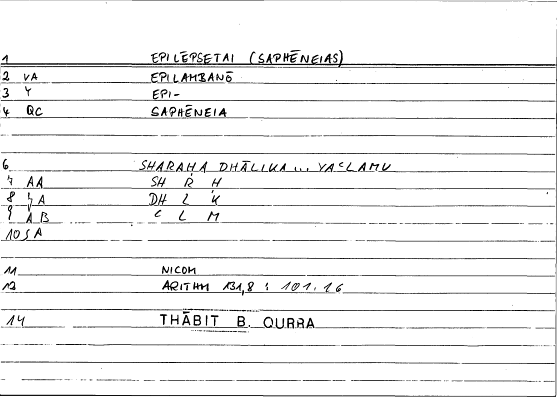 1 EPILĒPSETAI (SAPHĒNEIAS)
2 VA EPILAMBANŌ
3 Y EPI-
4 QC SAPHĒNEIA
6 SHARAḤA DHĀLIKA ... YAʿLAMU
7 AA SH R Ḥ
8 ʾA DH L K
9 AB ʿ L M
10 SA
11 NICOM
12 ARITHM 131,8 : 101.16
14 THĀBIT B. QURRA